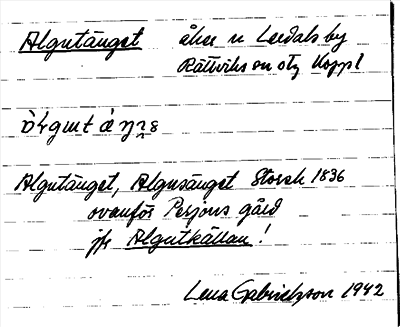 Algutänget åker n Lerdals by
Rättviks sn o tg Koppl
Algutänget, Algusänget Storsk 1836
ovanför Persjons gård
jfr Algutkällan!
Lena Gabrielsson 1942